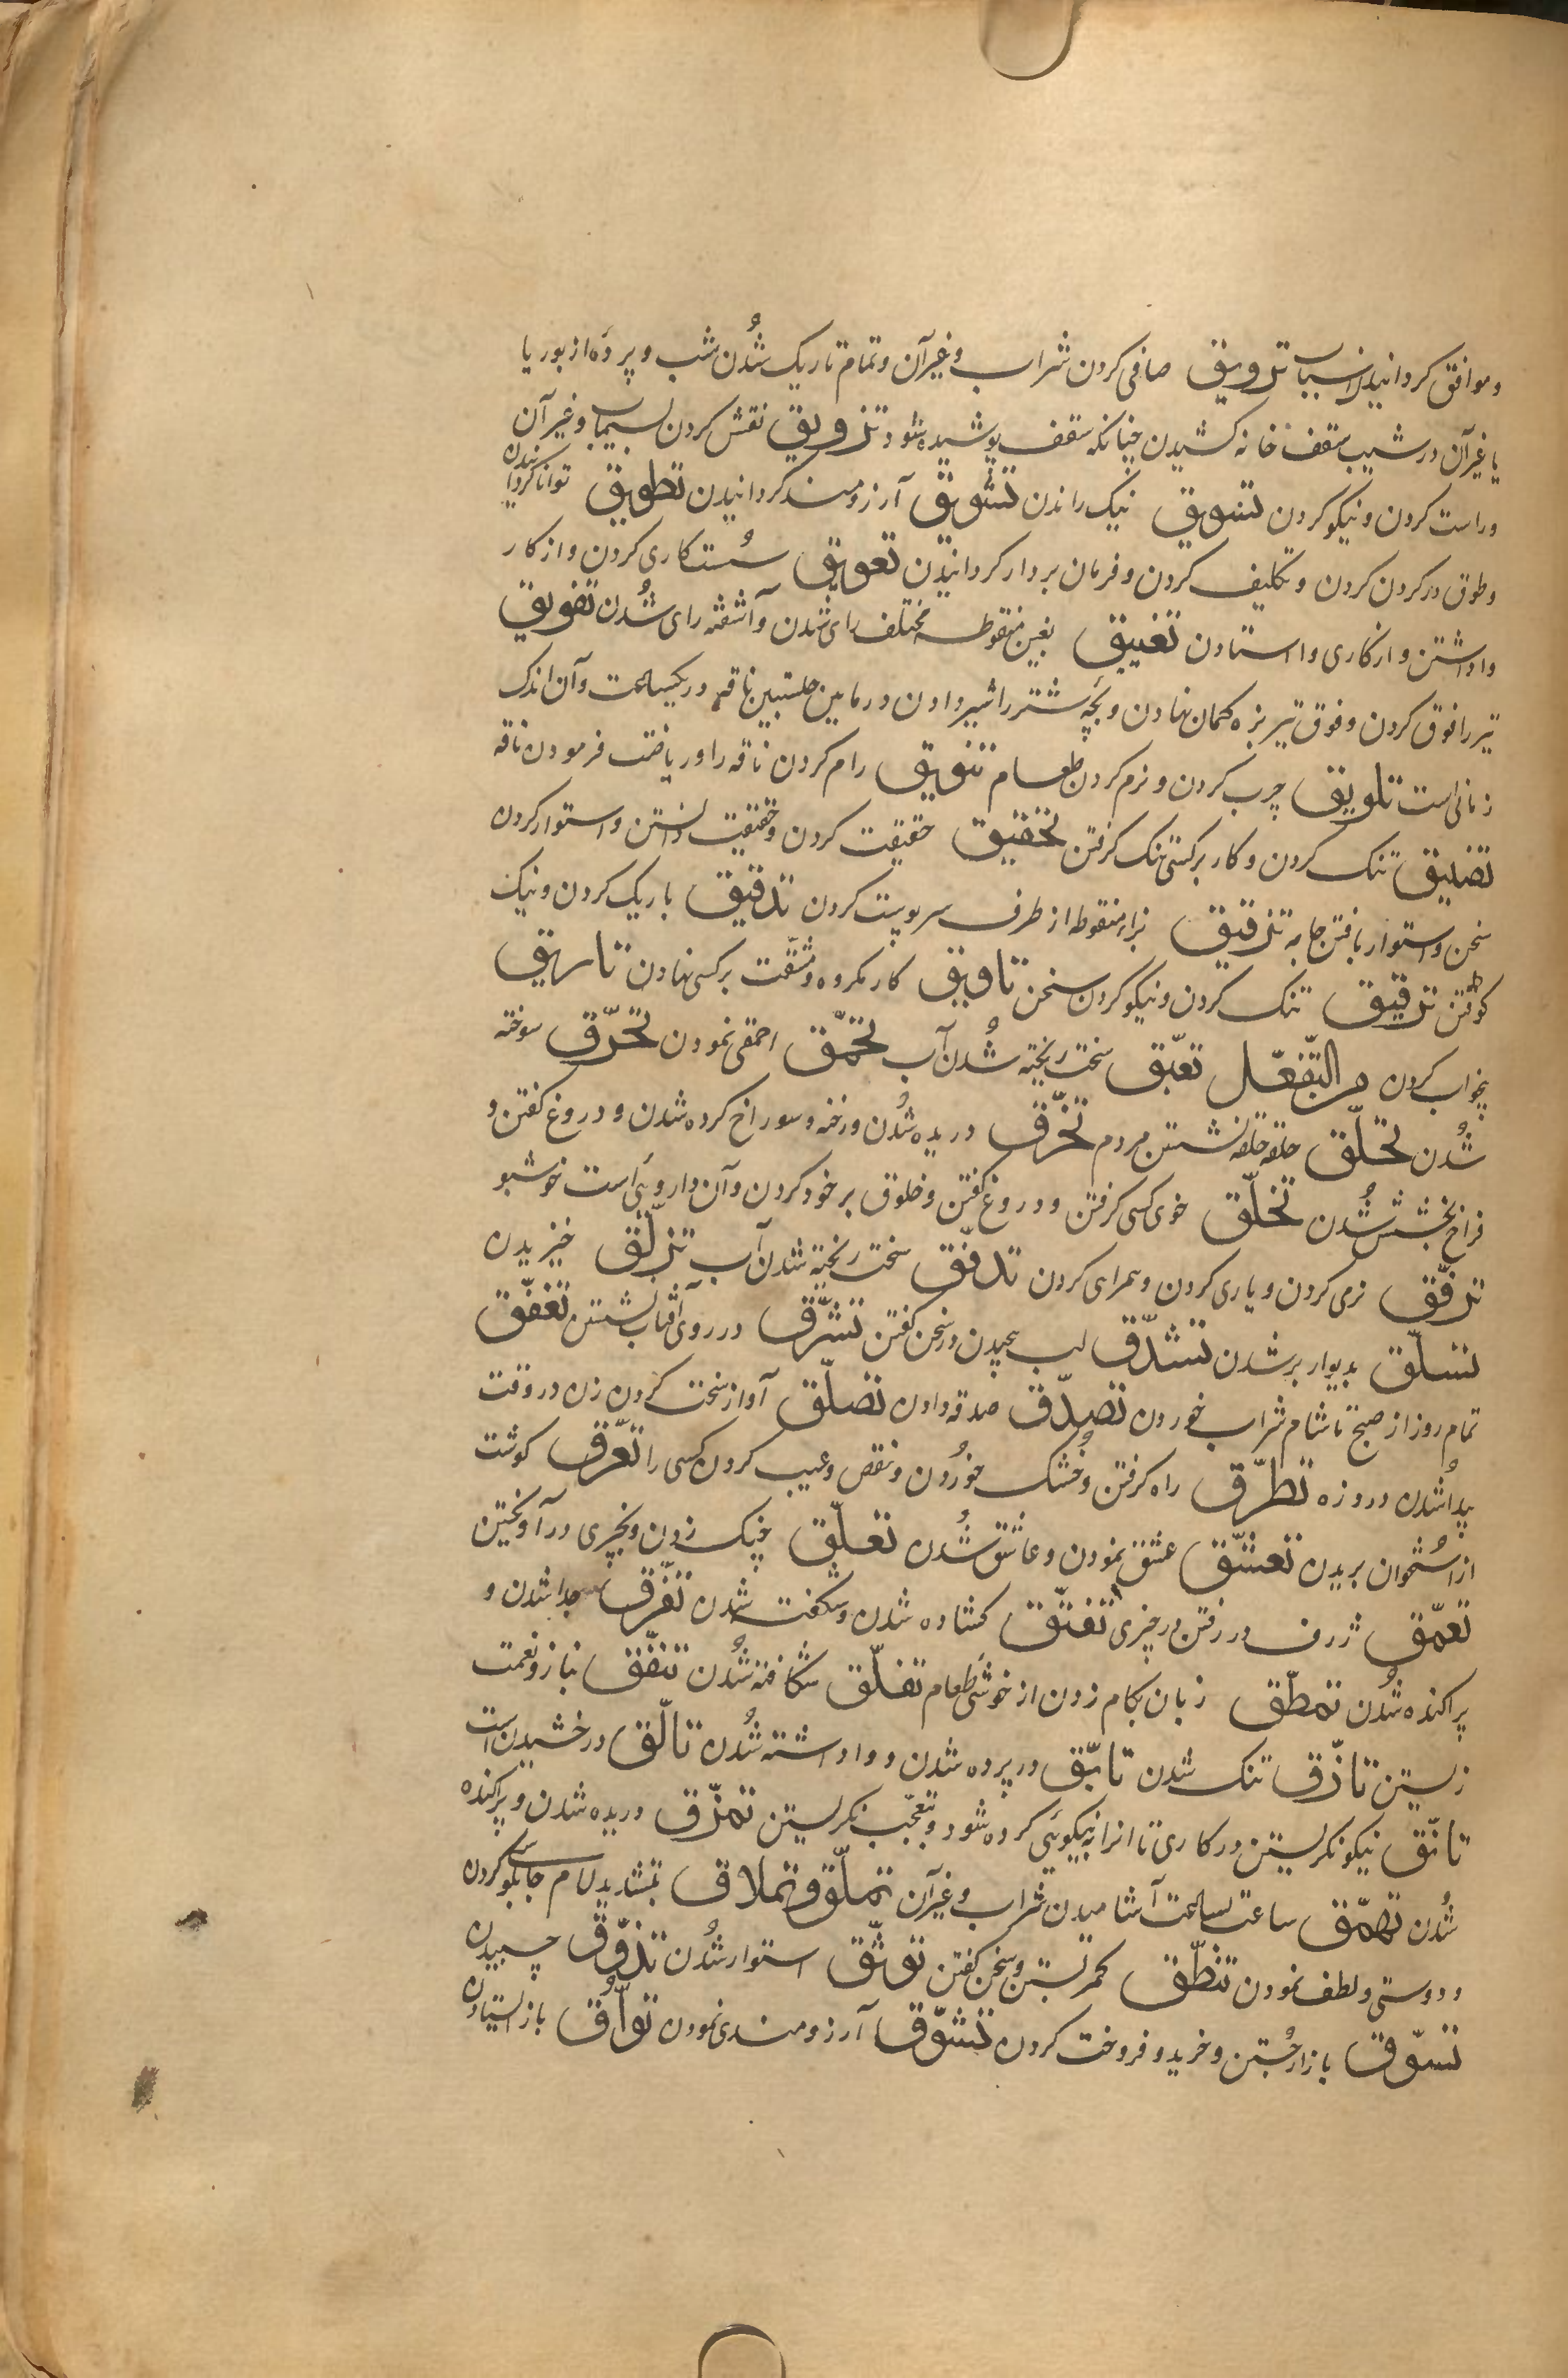 و موافق کردانیدن اسباب ترویق صافی کردن شراب و غیر آن و تمام تاریک شُدن شب و پردهٔ از بوریا
یا غیر آن در شیب سقف خانه کشیدن چنانکه سقف پوشیده شود تزویق نقش کردن بسیماب و غیر آن
و راست کردن و نیکو کردن تسویق نیک راندن تشویق آرزومند کردانیدن تطویق توانا کردانیدن
و طوق در کردن کردن و تکلیف کردن و فرمان بردار کردانیدن تعویق سُست کاری کردن و از کار
وا داشتن و از کاری وا استادن تغییق بغین منقوطه مختلف رای شدن و آشفته رای شُدن تفویق
تیر را فوق کردن و فوق تیر بزه کمان نهادن و بچّه شتر را شیر دادن در مابین حلبتین ناقه در یکساعت و آن اندک
زمانی است تلویق چرب کردن و نرم کردن طعام تنویق رام کردن ناقه را و ریاضت فرمودن ناقه
تضییق تنک کردن و کار بر کسی تنک کرفتن تحقیق حقیقت کردن و حقیقت دانستن و استوار کردن
سخن و استوار بافتن جامه تزقیق بزاء منقوطه از طرف سر پوست کردن تدقیق باریک کردن و نیک
کوفتن ترقیق تنک کردن و نیکو کردن سخن تاویق کار مکروه و مشقّت بر کسی نهادن تاریق
بیخواب کردن من التّفعّل تعبّق سخت ریخته شُدن آب تحمّق احمقی نمودن تحرّق سوخته
شُدن تحلّق حلقه حلقه نشستن مردم تخرّق دریده شُدن و رخنه و سوراخ کرده شدن و دروغ کفتن و
فراخ بخشش شُدن تخلّق خوی کسی کرفتن و دروغ کفتن و خلوق بر خود کردن و آن داروئی است خوشبو
ترفّق نرمی کردن و یاری کردن و همراهی کردن تدفّق سخت ریخته شدن آب تزلّق خیزیدن
تسلّق بدیوار بر شدن تشدّق لب پیچیدن در سخن کفتن تشرّق در روی آفتاب نشستن تغفّق
تمام روز از صبح تا شام شراب خوردن تصدّق صدقه دادن تصلّق آواز سخت کردن زن در وقت
پیدا شدن در وزه تطرّق راه کرفتن و خُشک خوُردن و نقص و عیب کردن کسی را تعرّق کوشت
از اسُتخوان بریدن تعشّق عشق نمودن و عاشق شُدن تعلّق چنک زدن و بچیزی در آویختن
تعمّق ژرف در رفتن در چیزی تفتّق کشاده شدن و شکفت شدن تفرّق جدا شدن و
پراکنده شُدن تمطّق زبان بکام زدن از خوشی طعام تفلّق شکافته شُدن تنفّق بناز و نعمت
زیستن تاذّق تنک شدن تابّق در پرده شدن و وا داشته شُدن تالّق درخشیدن است
تانّق نیکو نکریستن در کاری تا انرا به نیکویی کرده شود و بتعجّب نکریستن تمزّق دریده شدن و پراکنده
شُدن تهمّق ساعت بساعت آشامیدن شراب و غیر آن تملّق و تملاق بتشدید لام چاپلوسی کردن
و دوستی و لطف نمودن تنطّق کمر بستن و سخن کفتن توثّق استوار شُدن تذوّق چسپیدن
تسوّق بازار جُستن و خرید و فروخت کردن تشوّق آرزومندی نمودن توأّق باز ایستادن